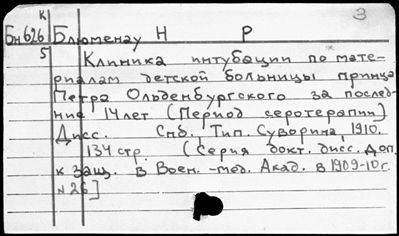 К 3
Бн 626 Блюменау Н Р
5 Клиника интубации по мате-
риалам детской больницы принца
Петра Ольденбургского за послед-
ние 14 лет (Период серотерапии)
Дисс. Спб, Тип. Суворина, 1910.
134 стр. (Серия докт. дисс. доп.
к защ. в Воен.-мед. Акад. в 1909-10 г.
N 26]